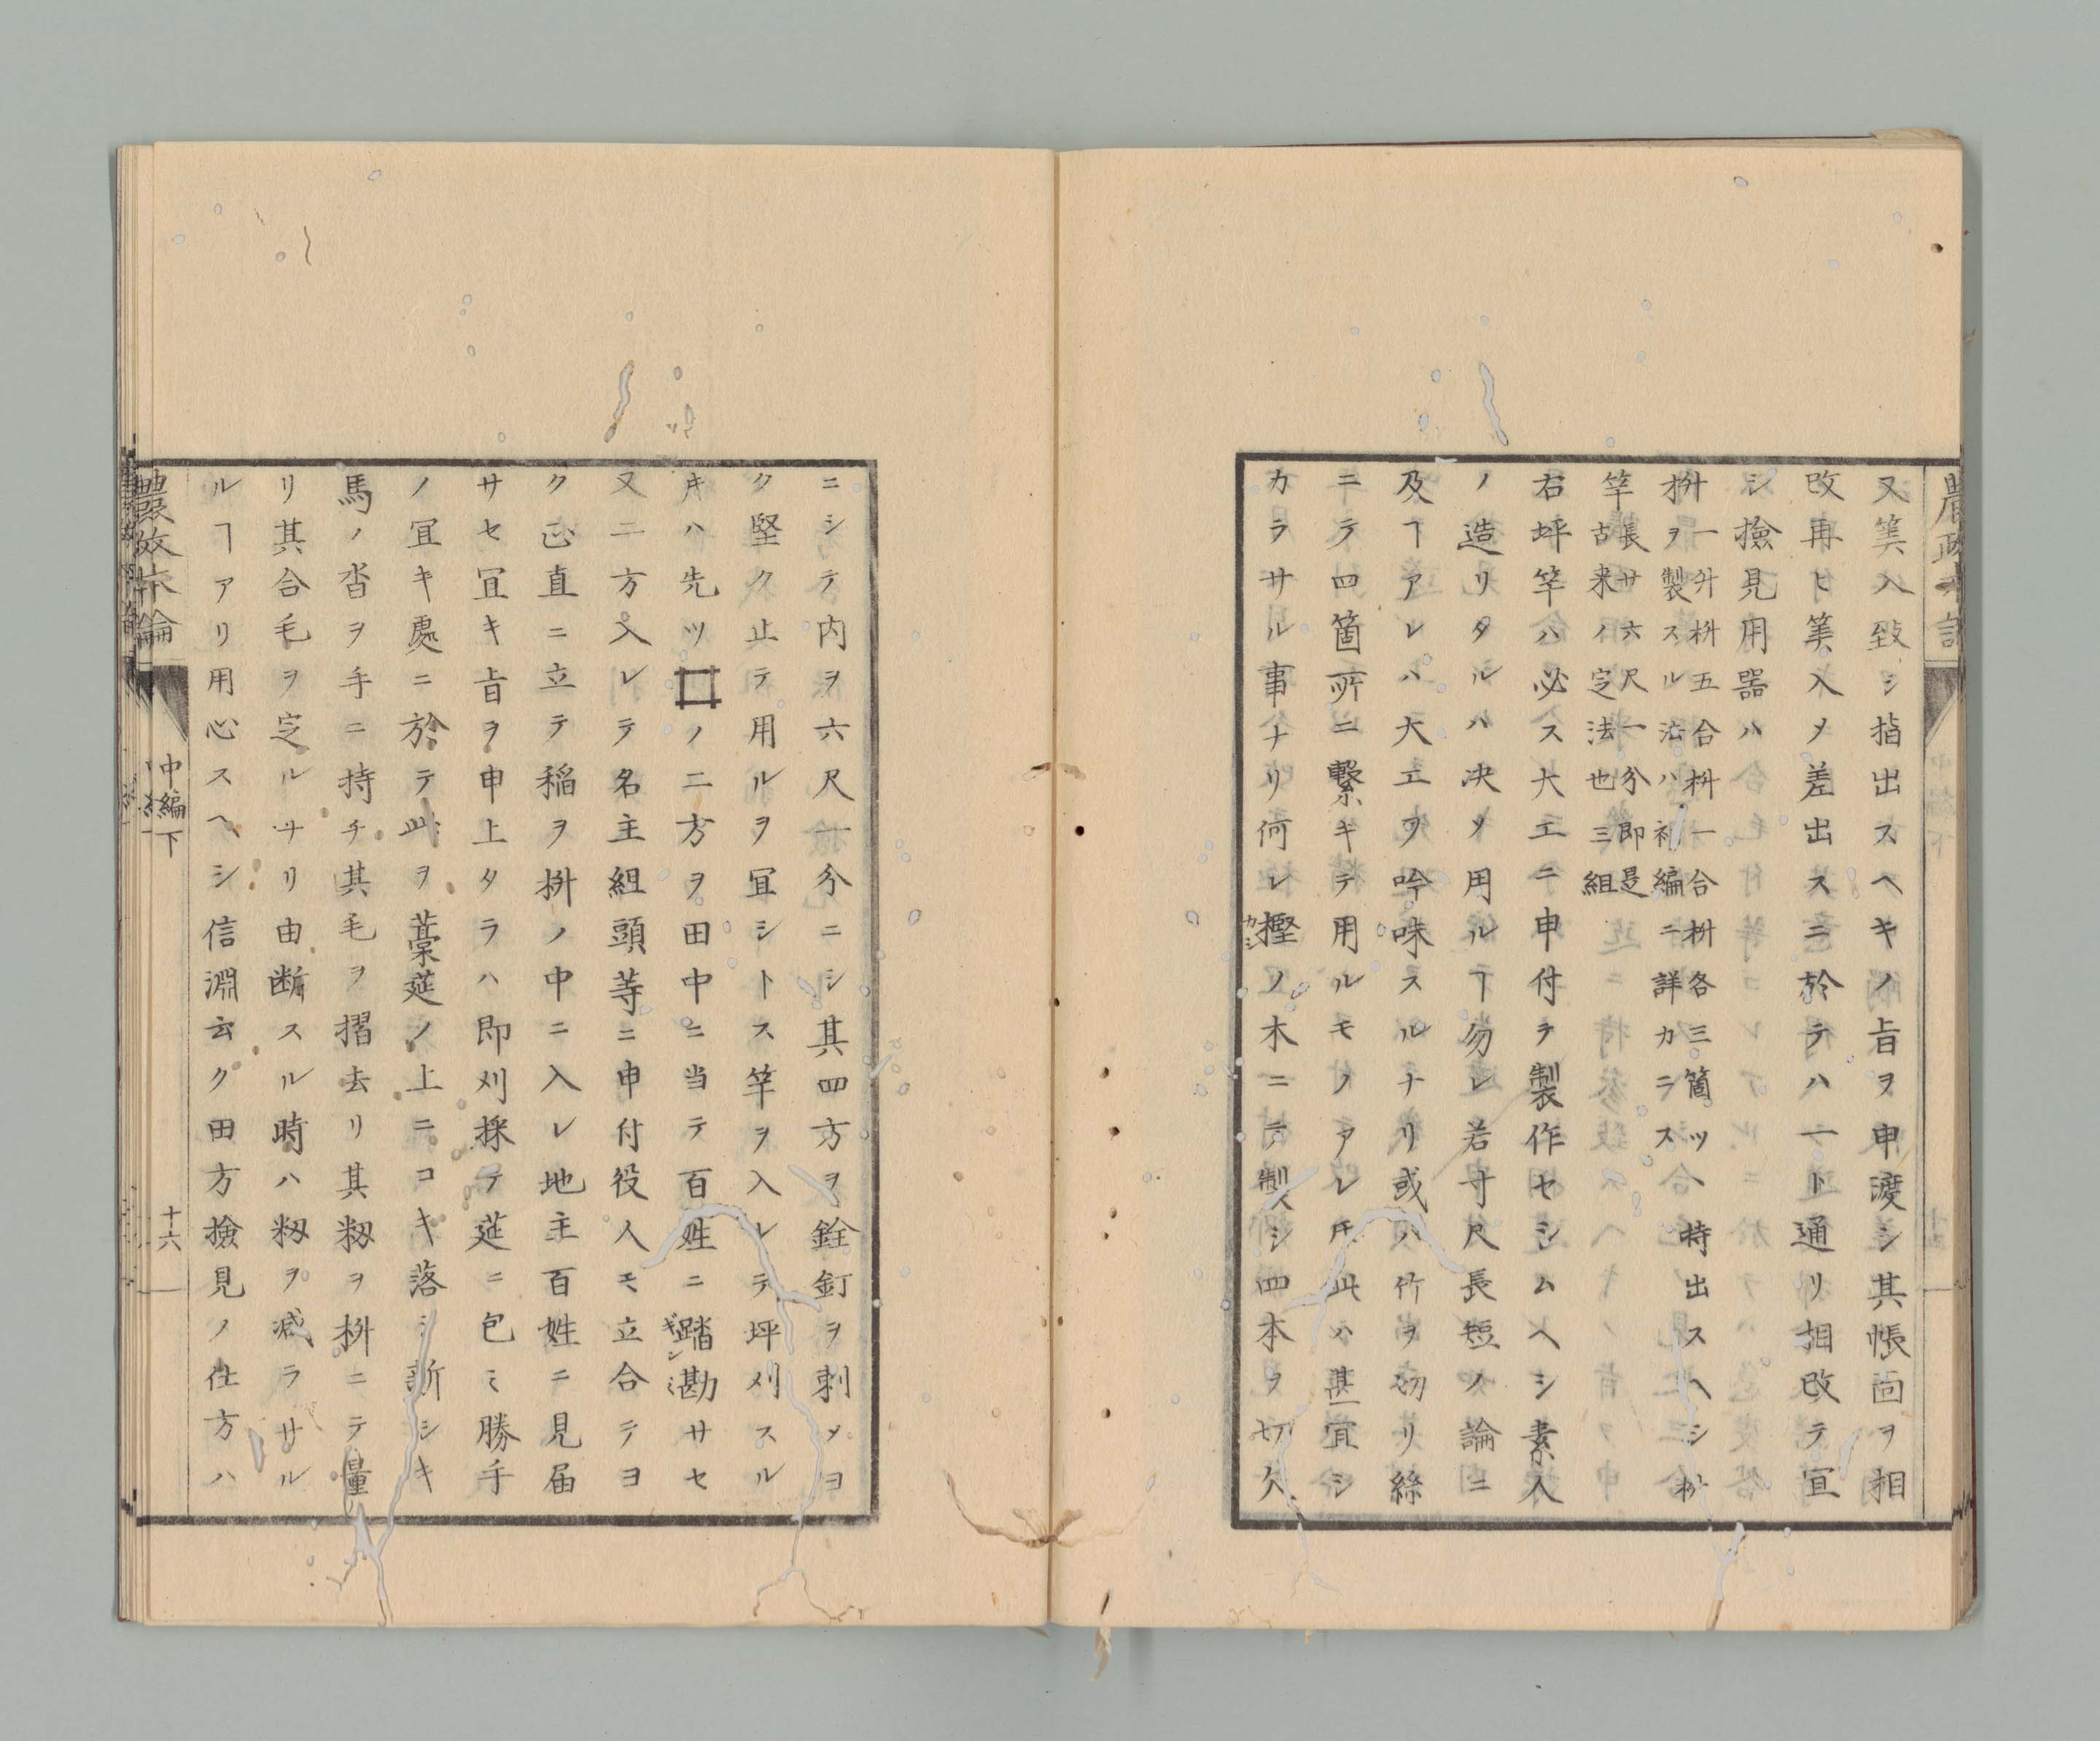 又筭入致シ指出スヘキノ旨ヲ申渡シ其帳面ヲ相
改再ヒ筭入メ差出スニ於テハ一ト通リ相改テ宜
シ撿見用器ハ
升一升枡五合枡一合枡各三箇ツヽ時出スヘシ枡
ヲ製スル法ハ補編ニ詳カニス
竿長サ六尺一分即是
古来ノ定法也三組
右坪竿ハ必ス大工ニ申付テ製作セシムヘシ素人
ノ造リタルハ决ソ用ルヿ勿レ若寸尺長短ノ論ニ
及ヿアレハ大工ヲ吟味スルナリ或ハ竹ヲ切リ絲
ニテ四箇所ニ繋キテ用ルモノアレ𪜈此ハ甚宜シ
カラサル事ナリ何レ樫カシノ木ニテ製シ四本ヲ切欠
ニシテ内ヲ六尺一分ニシ其四方ヲ銓釘ヲ刺メヨ
ク堅ク止テ用ルヲ冝シトス竿ヲ入レテ坪刈スル
𪜈ハ先ツ口ノ二方ヲ田中ニ当テ百姓ニ踏勘サセ
又二方入レテ名主組頭等ニ申付役人モ立合テヨ
ク正直ニ立テ稲ヲ枡ノ中ニ入レ地主百姓ニ見届
サセ冝キ旨ヲ申上タラハ即刈採テ莚ニ包ミ勝手
ノ冝キ處ニ於テ此ヲ藁莚ノ上ニコキ落シ新シキ
馬ノ沓ヲ手ニ持チ其毛ヲ摺去リ其籾ヲ枡ニテ量
リ其合毛ヲ定ルナリ由断スル時ハ籾ヲ减ラサル
ルヿアリ用心スヘシ信淵云ク田方撿見ノ仕方ハ
農政本論
中編下
十六